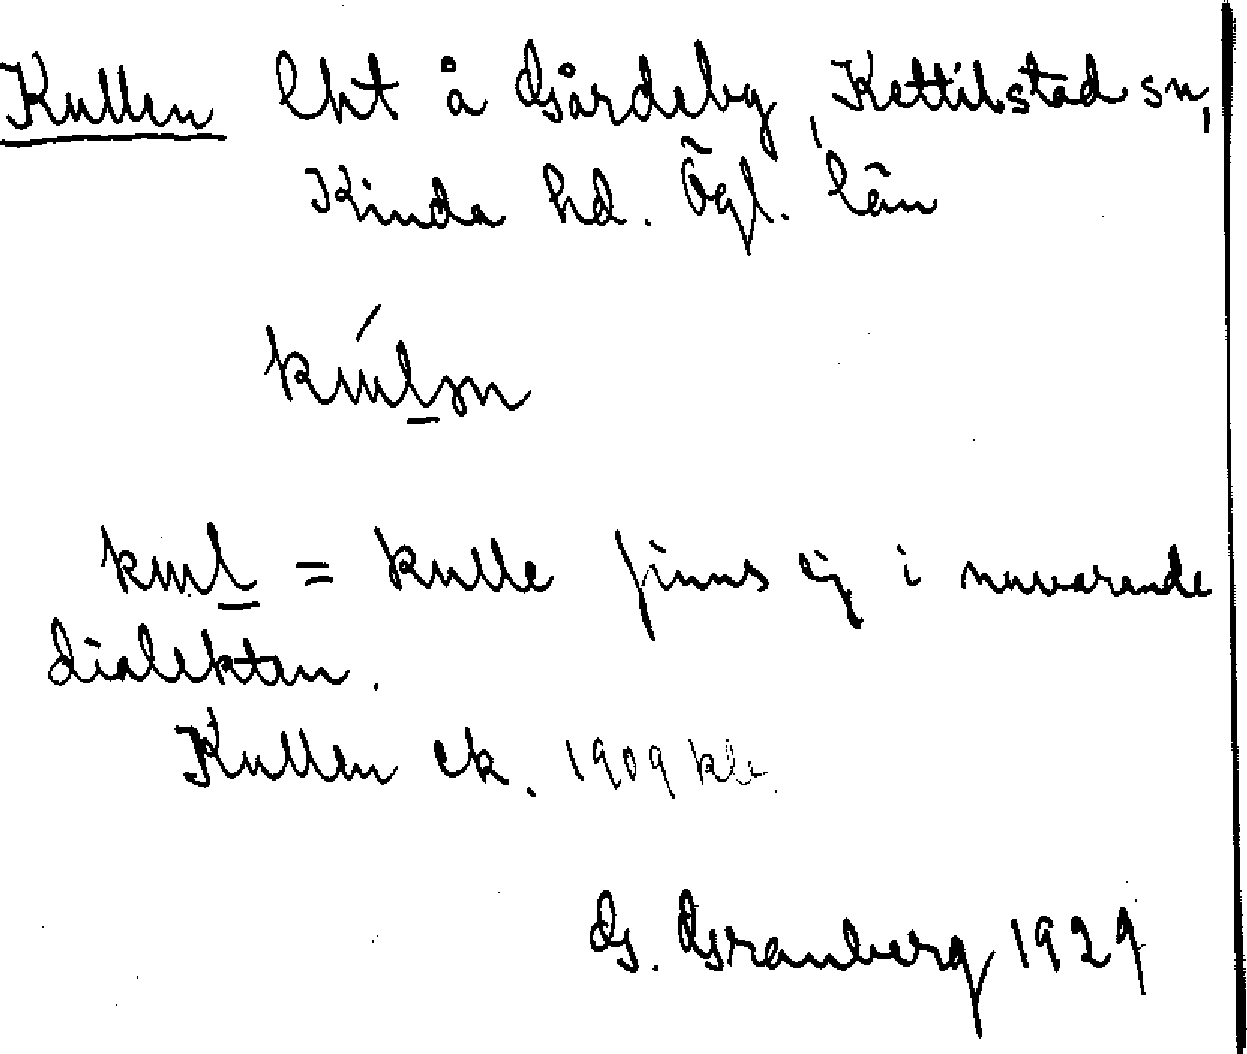 Kullen lht å Gårdeby, Kettilstad sn,
Kinda hd. Ögl. län
kul = kulle finns ej i nuvarande
dialekten.
Kullen ek. 1909 kls.
G. Granberg 1929